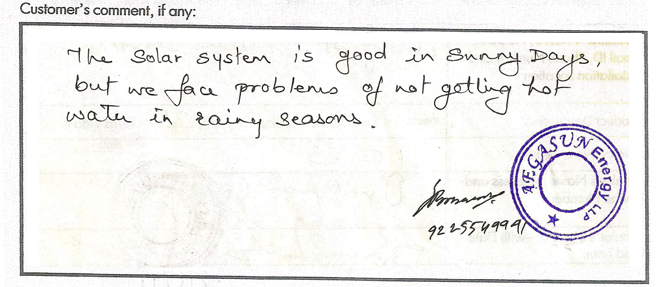 Customer's comment, if any:
The Solar system is good in Sunny Days,
but we face problems of not getting hot
water in rainy seasons.
AEGASUN Energy LLP
9225549991